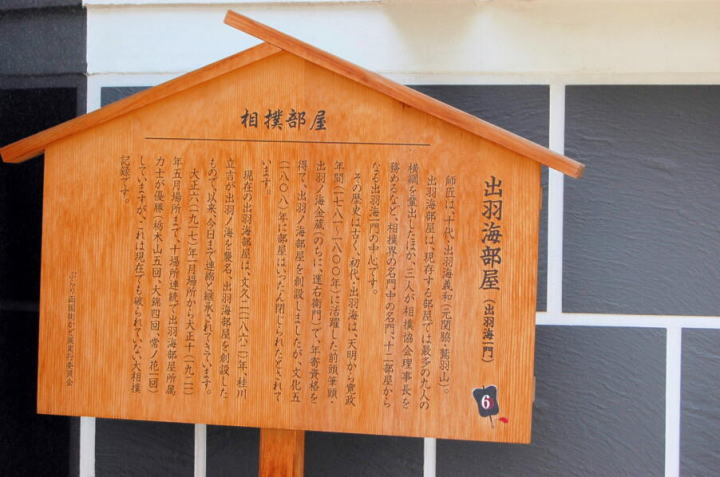 相撲部屋
出羽海部屋(出羽海一門)
師匠は、十代・出羽海義和(元関脇・鷲羽山)。
出羽海部屋は、現存する部屋では最多の九人の
横綱を輩出したほか、三人が相撲協会理事長を
務めるなど、相撲界の名門中の名門、十二部屋から
なる出羽海一門の中心です。
その歴史は古く、初代・出羽海は、天明から寛政
年間(一七八一〜一八〇〇年)に活躍した前頭筆頭・
出羽ノ海金蔵(のちに、運右衛門)で、年寄資格を
得て、出羽ノ海部屋を創設しましたが、文化五
(一八〇八)年に部屋はいったん閉じられたとされて
います。
現在の出羽海部屋は、文久二(一八六二)年、桂川
立吉が出羽ノ海を襲名、出羽海部屋を創設した
もので、以来、今日まで連綿と継承されてきています。
大正六(一九一七)年一月場所から大正十(一九二一)
年五月場所まで、十場所連続で出羽海部屋所属
力士が優勝(栃木山五回・大錦四回・常ノ花一回)
していますが、これは現在でも破られていない大相撲
記録です。
ぶらり両国街かど展実行委員会
6